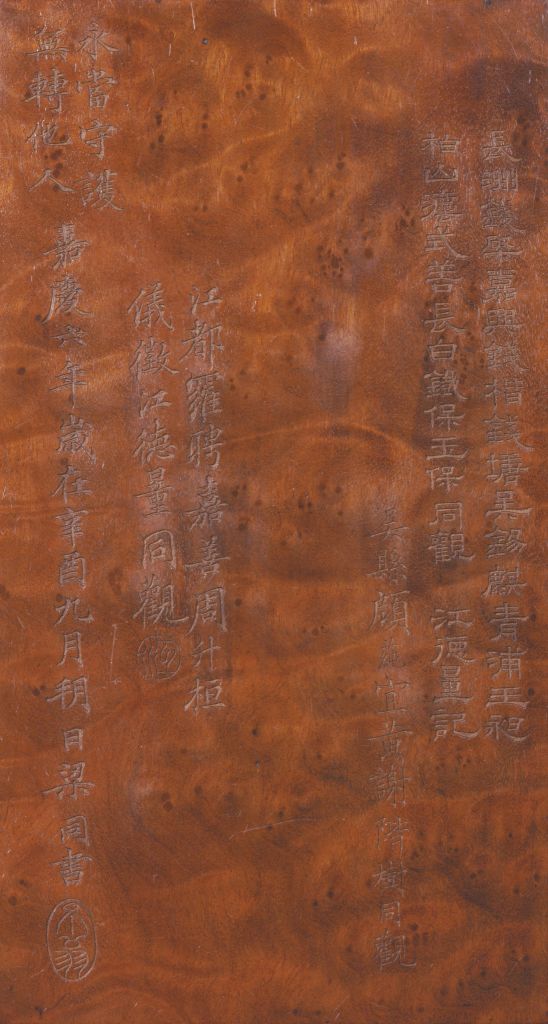 長洲錢棨嘉興錢楷錢塘吳錫麒青浦王昶
柏山灋式善長白鐵保玉保同觀 江德量記
吳縣顧蒓宜黃謝階樹同觀
江都羅聘嘉善周升桓
儀徵江德量同觀
永當守護
無轉他人 嘉慶六年歲在辛酉九月朔日梁同書